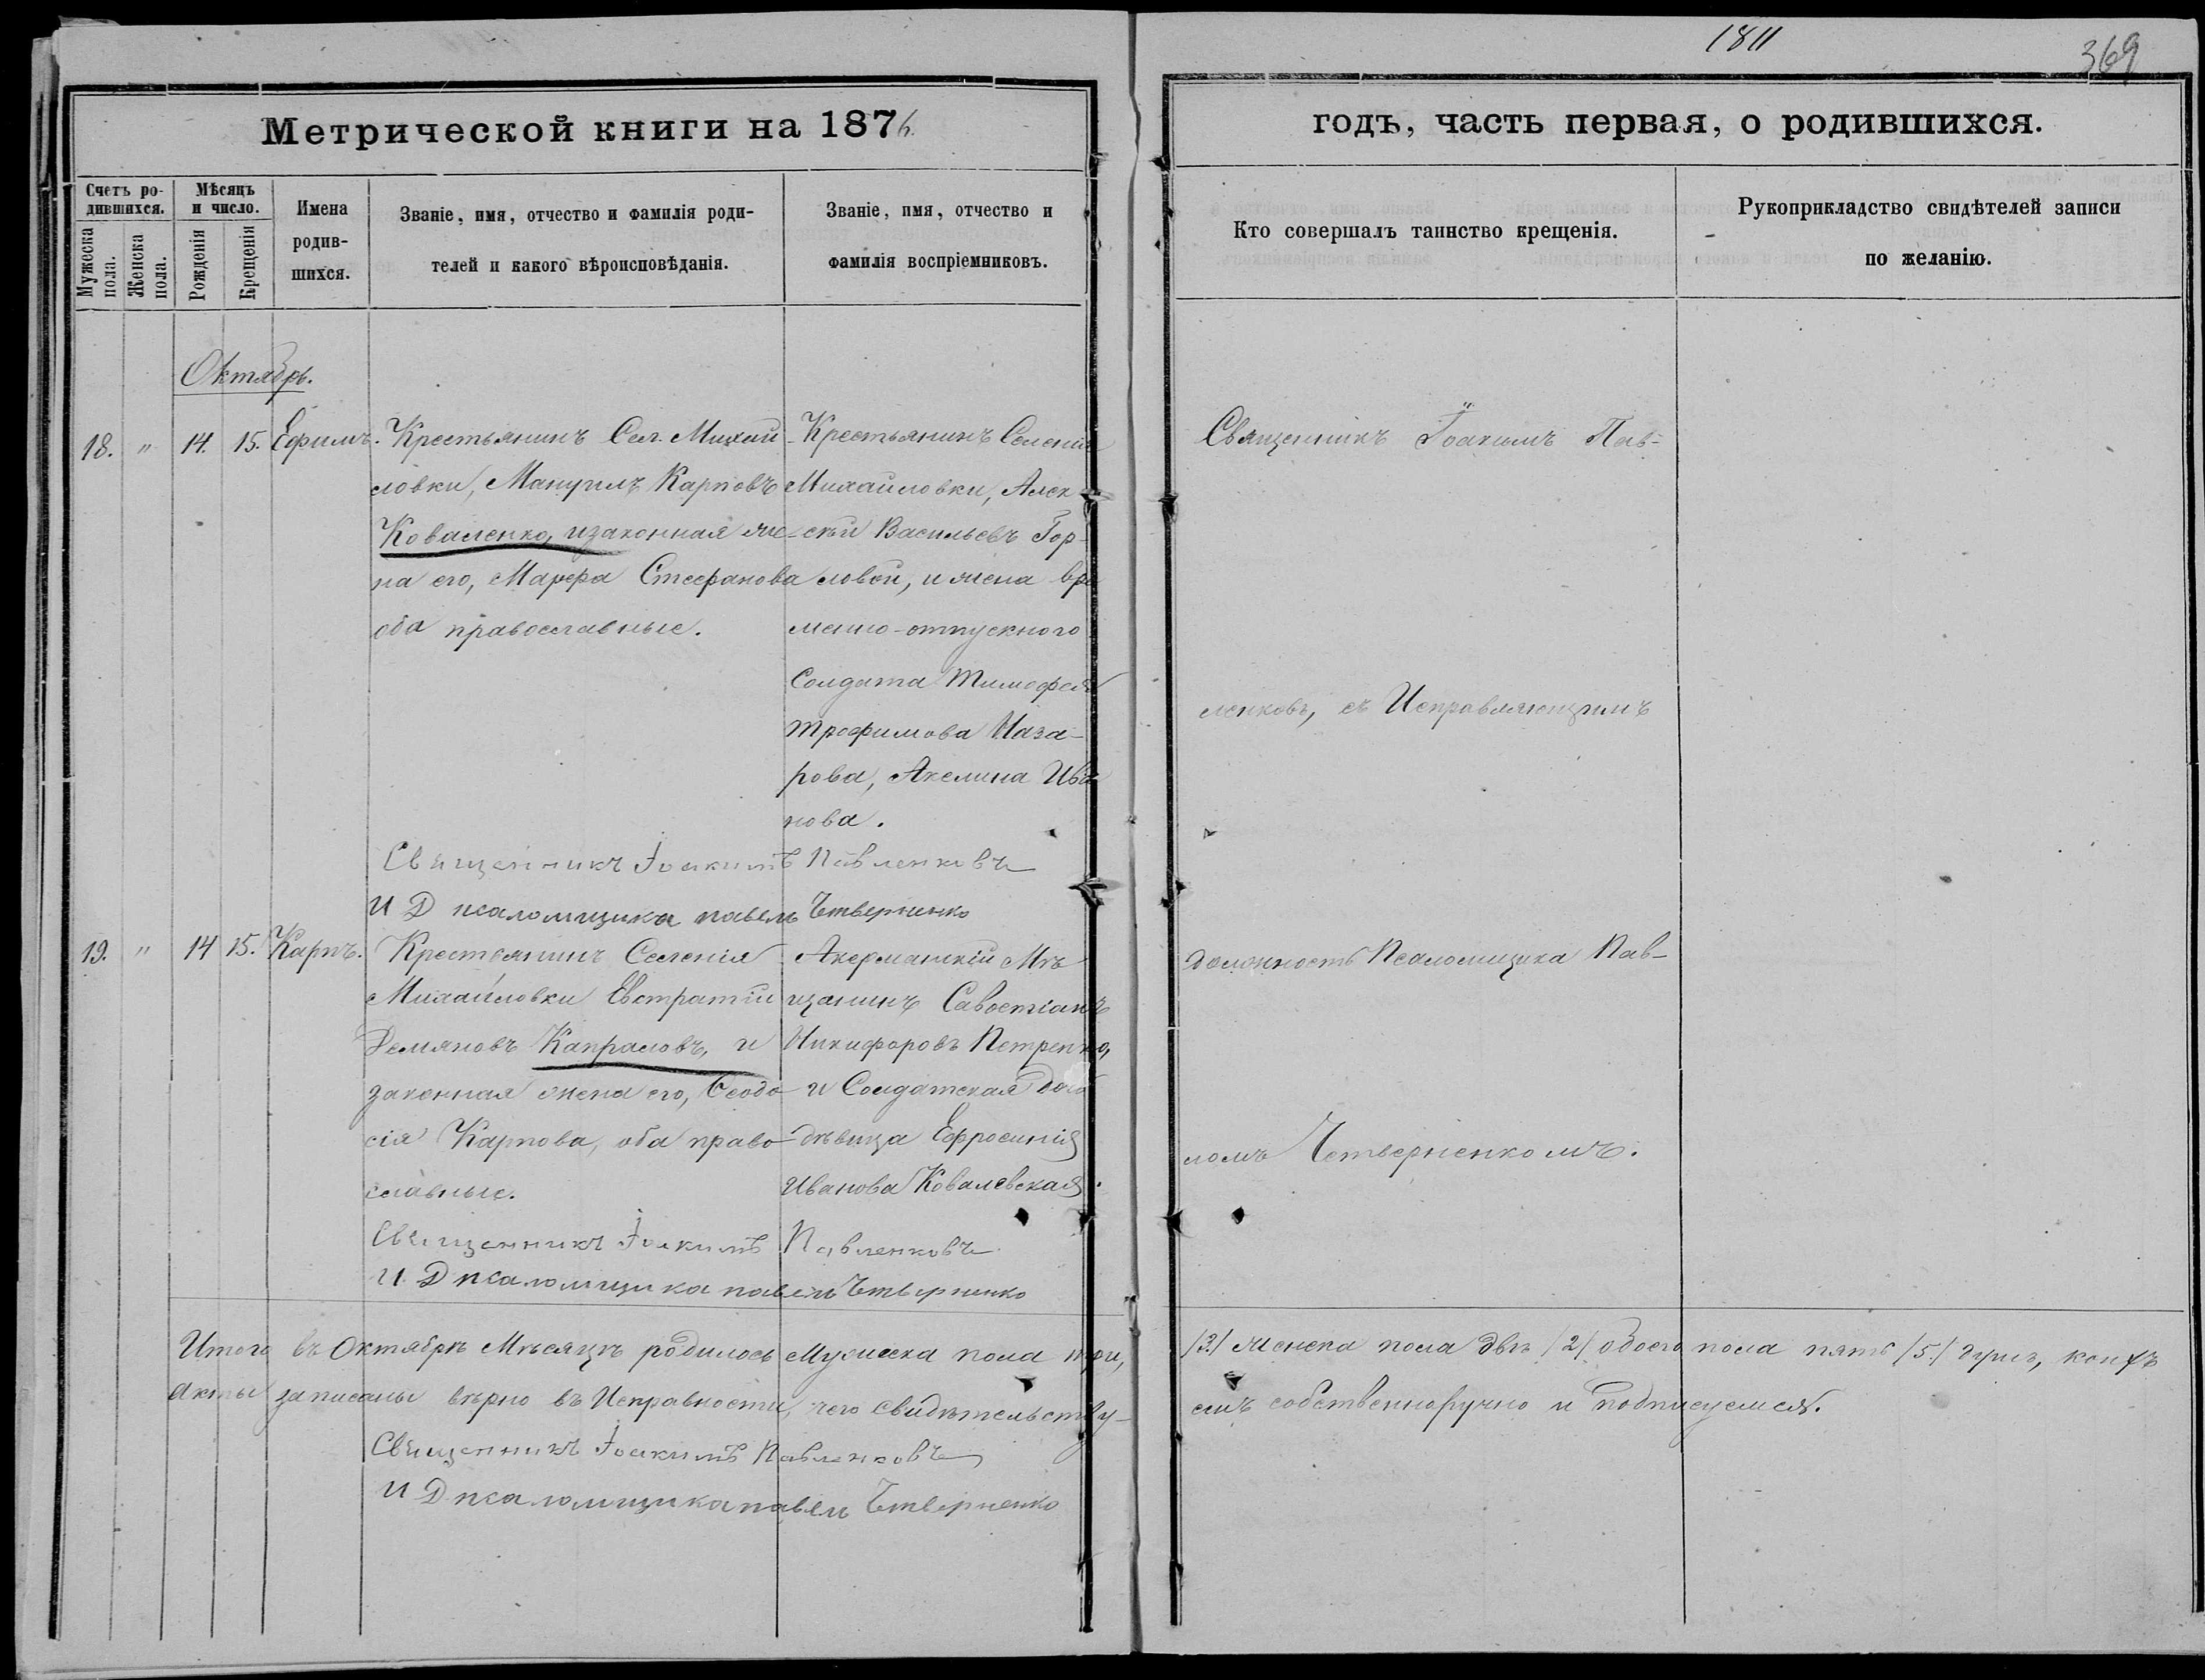 1811
369
Метрической книги на 1876.
годъ, часть первая, о родившихся.
Счетъ ро-
дившихся.
Мужеска
пола.
Женска
пола.
Мѣсяцъ
и число.
Рожденія
Крещенія
Имена
родив-
шихся.
Званіе, имя, отчество и фамилія роди-
телей и какого вѣроисповѣданія.
Званіе, имя, отчество и
фамилія воспріемниковъ.
Кто совершалъ таинство крещенія.
Рукоприкладство свидѣтелей записи
по желанію.
Октябрь.
18. " 14. 15. Ефимъ.
Крестьянинъ Сел. Михай-
ловки, Мануилъ Карповъ
Коваленко, и законная же-
на его, Марфа Стефанова
оба православные.
Крестьянинъ Селенія
Михайловки, Алек
сѣй Васильевъ Гор-
ловой, и жена вре
менно-отпускного
Солдата Тимофея
Трофимова Наза-
рова, Акелина Ива
нова.
Священникъ Іоакимъ Павленковъ
И Д псаломщика павелъ Четверненко
19. " 14 15. Карпъ.
Крестьянинъ Селенія
Михайловки Евстратій
Демяновъ Капраловъ, и
законная жена его, Ѳеодо
сія Карпова, оба право
славные.
Акерманскій Мѣ
щанинъ Савостіанъ
Никифоровъ Петренко,
и Солдатская дочь
дѣвица Ефросинія
Иванова Ковалевская.
Священникъ Іоакимъ Павленковъ
И Д псаломщика павелъ Четверненко
Священникъ Іоакимъ Пав-
ленковъ, съ Исправляющимъ
должность Псаломщика Пав-
ломъ Четверненкомъ.
Итого въ Октябрѣ Мѣсяцѣ родилось Мужеска пола три, /3/ женска пола двѣ /2/ обоего пола пять /5/ душъ,
Акты записаны вѣрно въ Исправности, чего свидѣтельству-
емъ собственноручно и подписуемся.
Священникъ Іоакимъ Павленковъ
И Д псаломщика павелъ Четверненко